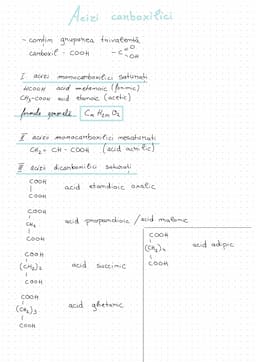 Acizi carboxilici
- conțin gruparea trivalentă
carboxil - COOH - C O OH
I acizi monocarboxilici saturați
HCOOH acid metanoic (formic)
CH3-COOH acid etanoic (acetic)
formula generală CnH2nO2
II acizi monocarboxilici nesaturați
CH2 = CH - COOH (acid acrilic)
III acizi dicarboxilici saturați
COOH
|
COOH
acid etandioic oxalic
COOH
|
CH2
|
COOH
acid propandioic / acid malonic
COOH
|
(CH2)4
|
COOH
acid adipic
COOH
|
(CH2)2
|
COOH
acid succinic
COOH
|
(CH2)3
|
COOH
acid glutaric